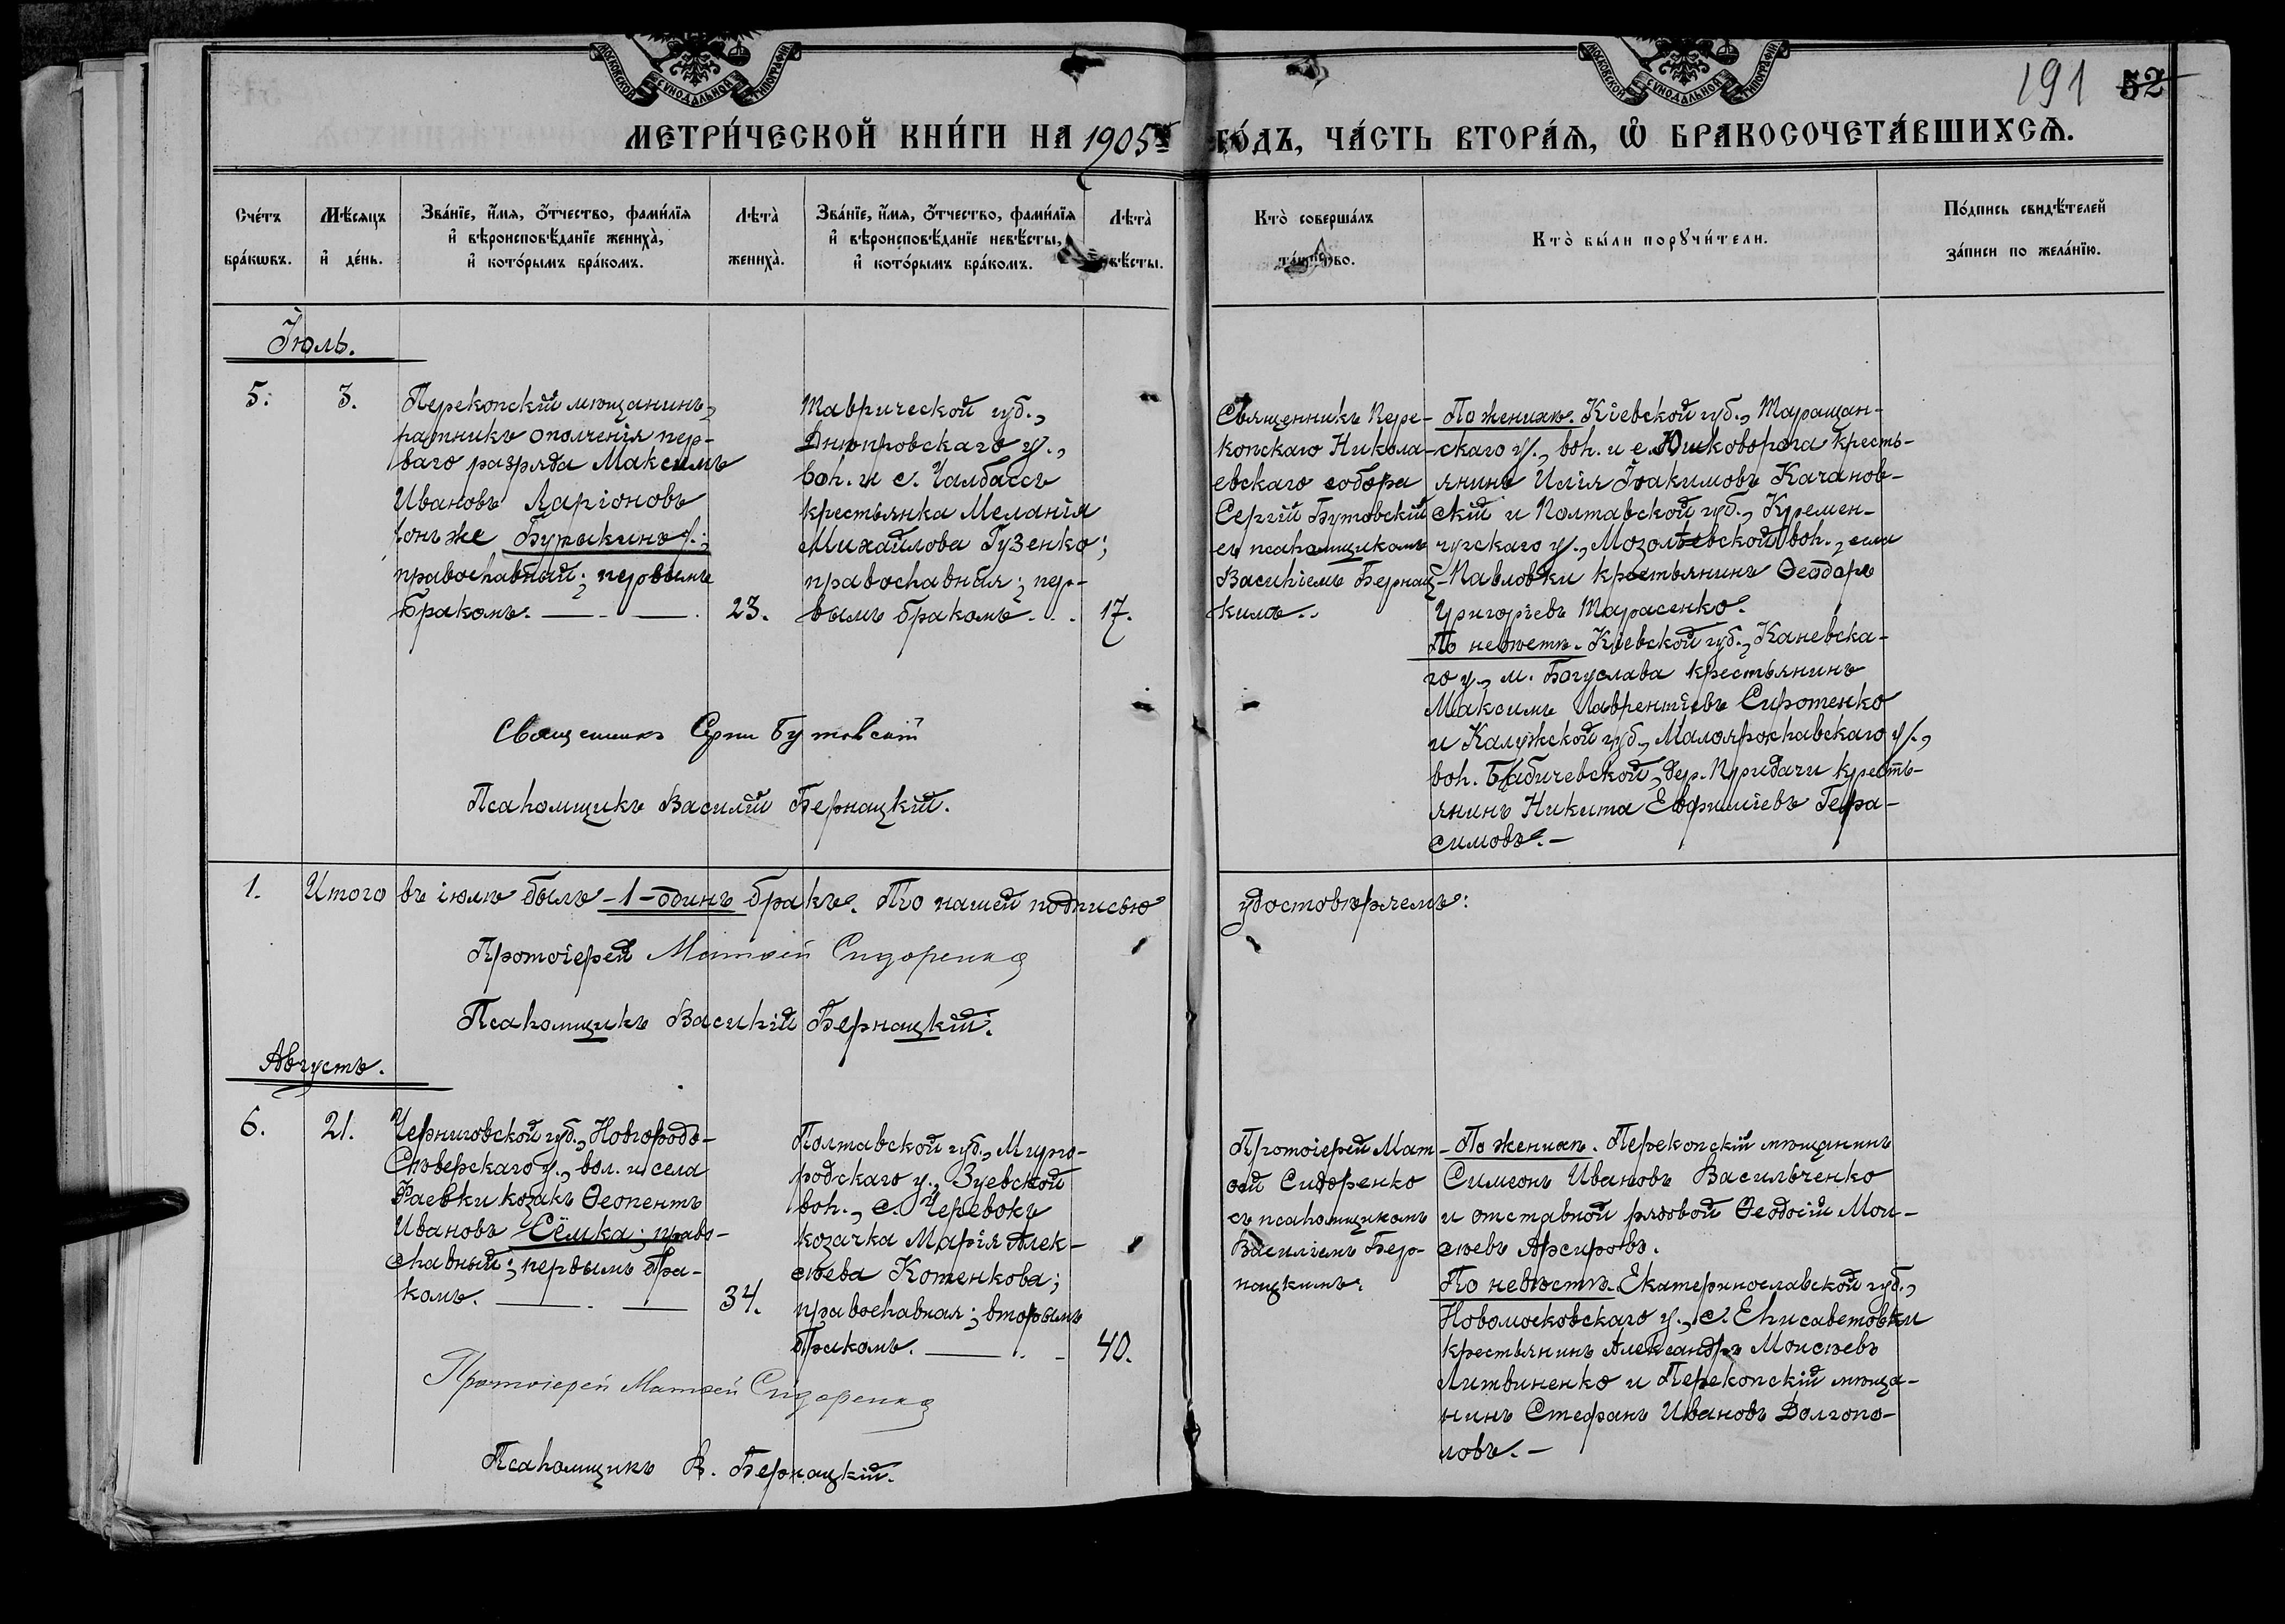 МОСКОВСКОЙ СУНОДАЛЬНОЙ ТИПОГРАФІИ
МОСКОВСКОЙ СУНОДАЛЬНОЙ ТИПОГРАФІИ
191 52
МЕТРИ́ЧЕСКОЙ КНИ́ГИ НА 1905й ГО́ДЪ, ЧА́СТЬ ВТОРА́Я, Ѡ БРАКОСОЧЕТА́ВШИХСЯ.
Сче́тъ
бра́кѡвъ.
Мѣ́сяцъ
и҆ де́нь.
Зва́нїе, и҆́мя, ѻ҆́тчество, фами́лїя
и҆ вѣроисповѣ́данїе женихà,
и҆ кото́рымъ бра́комъ.
Лѣтà
женихà.
Зва́нїе, и҆́мя, ѻ҆́тчество, фами́лїя
и҆ вѣроисповѣ́данїе невѣ́сты,
и҆ кото́рымъ бра́комъ.
Лѣтà
невѣ́сты.
Ктò соверша́лъ
та́инство.
Ктò бы́ли порꙋчи́тели.
По́дпись свидѣ́телей
за́писи по жела́нїю.
Іюль.
5.
3.
Перекопскій мѣщанинъ,
ратникъ ополченія пер-
ваго разряда Максимъ
Ивановъ Ларіоновъ
(онъ же Бурыкинъ);
православный; первымъ
бракомъ. — . — .
23.
Таврической губ.,
Днѣпровскаго у.,
вол. и с. Чалбассъ
крестьянка Меланія
Михайлова Гузенко;
православная; пер-
вымъ бракомъ . . .
17.
Священникъ Пере-
копскаго Никола-
евскаго собора
Сергій Бутовскій
съ псаломщикомъ
Василіемъ Бернац-
кимъ..
По женихѣ. Кіевской губ., Таращан-
скаго у., вол. и с. Юшковорога кресть-
янинъ Илія Іоакимовъ Качанов-
скій и Полтавской губ., Кремен-
чугскаго у., Мозолѣевской вол., села
Павловки крестьянинъ Ѳеодоръ
Григоріевъ Тарасенко.
По невѣстѣ. Кіевской губ., Каневска-
го у., м. Богуслава крестьянинъ
Максимъ Лаврентіевъ Сиротенко
и Калужской губ., Малоярославскаго у.,
вол. Бабичевской, дер. Придачи кресть-
янинъ Никита Евфиміевъ Гера-
симовъ. —
Священникъ Сергій Бутовскій
Псаломщикъ Василій Бернацкій.
1.
Итого въ іюлѣ былъ - 1 - одинъ бракъ. Что нашей подписью удостовѣряемъ:
Протоіерей Матѳей Сидоренко
Псаломщикъ Василій Бернацкій.
Августъ.
6.
21.
Черниговской губ., Новгородъ-
Сѣверскаго у., вол. и села
Фаевки козакъ Ѳеопентъ
Ивановъ Сёмка; право-
славный; первымъ бра-
комъ. — . —
34.
Полтавской губ., Мирго-
родскаго у., Зуевской
вол., с. Черевокъ
козачка Марія Алек-
сѣева Котенкова;
православная; вторымъ
бракомъ. — . . -
40.
Протоіерей Мат-
ѳей Сидоренко
съ псаломщикомъ
Василіемъ Бер-
нацкимъ.
По женихѣ. Перекопскій мѣщанинъ
Симеонъ Ивановъ Васильченко
и отставной рядовой Ѳеодосій Мои-
сеевъ
По невѣстѣ. Екатеринославской губ.,
Новомосковскаго у., с. Елисаветовки
крестьянинъ Александръ Моисѣевъ
Литвиненко и Перекопскій мѣща-
нинъ Стефанъ Ивановъ Долгопо-
ловъ. —
Протоіерей Матѳей Сидоренко
Псаломщикъ В. Бернацкій.